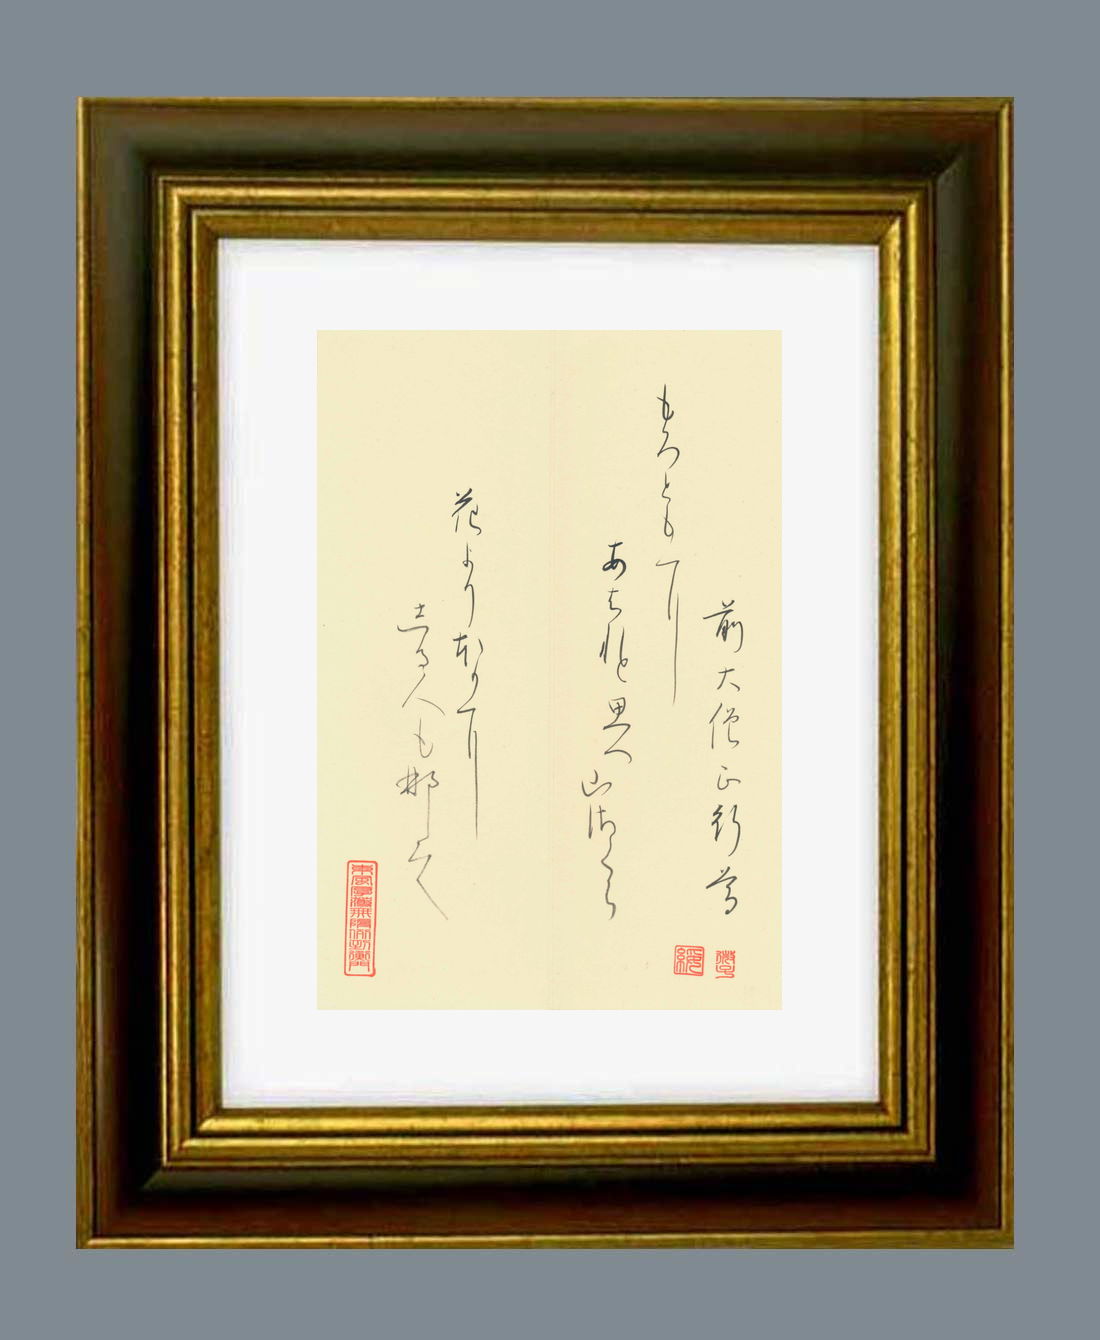 前大僧正行尊
もろともに
あはれと思へ山佐くら
花よりほかに
志る人も那し